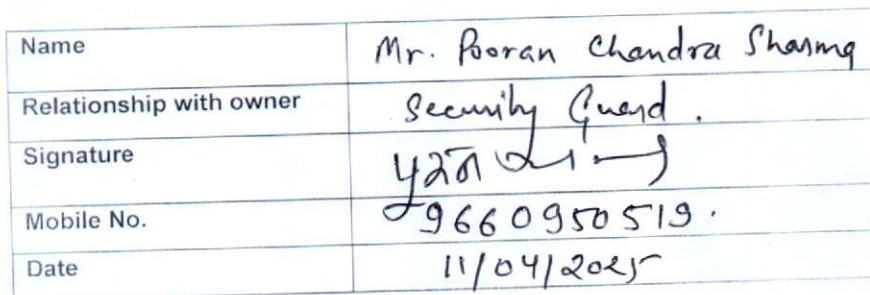 Name Mr. Pooran Chandra Sharma
Relationship with owner Security Guard.
Signature पुरन
Mobile No. 9660950519.
Date 11/04/2025